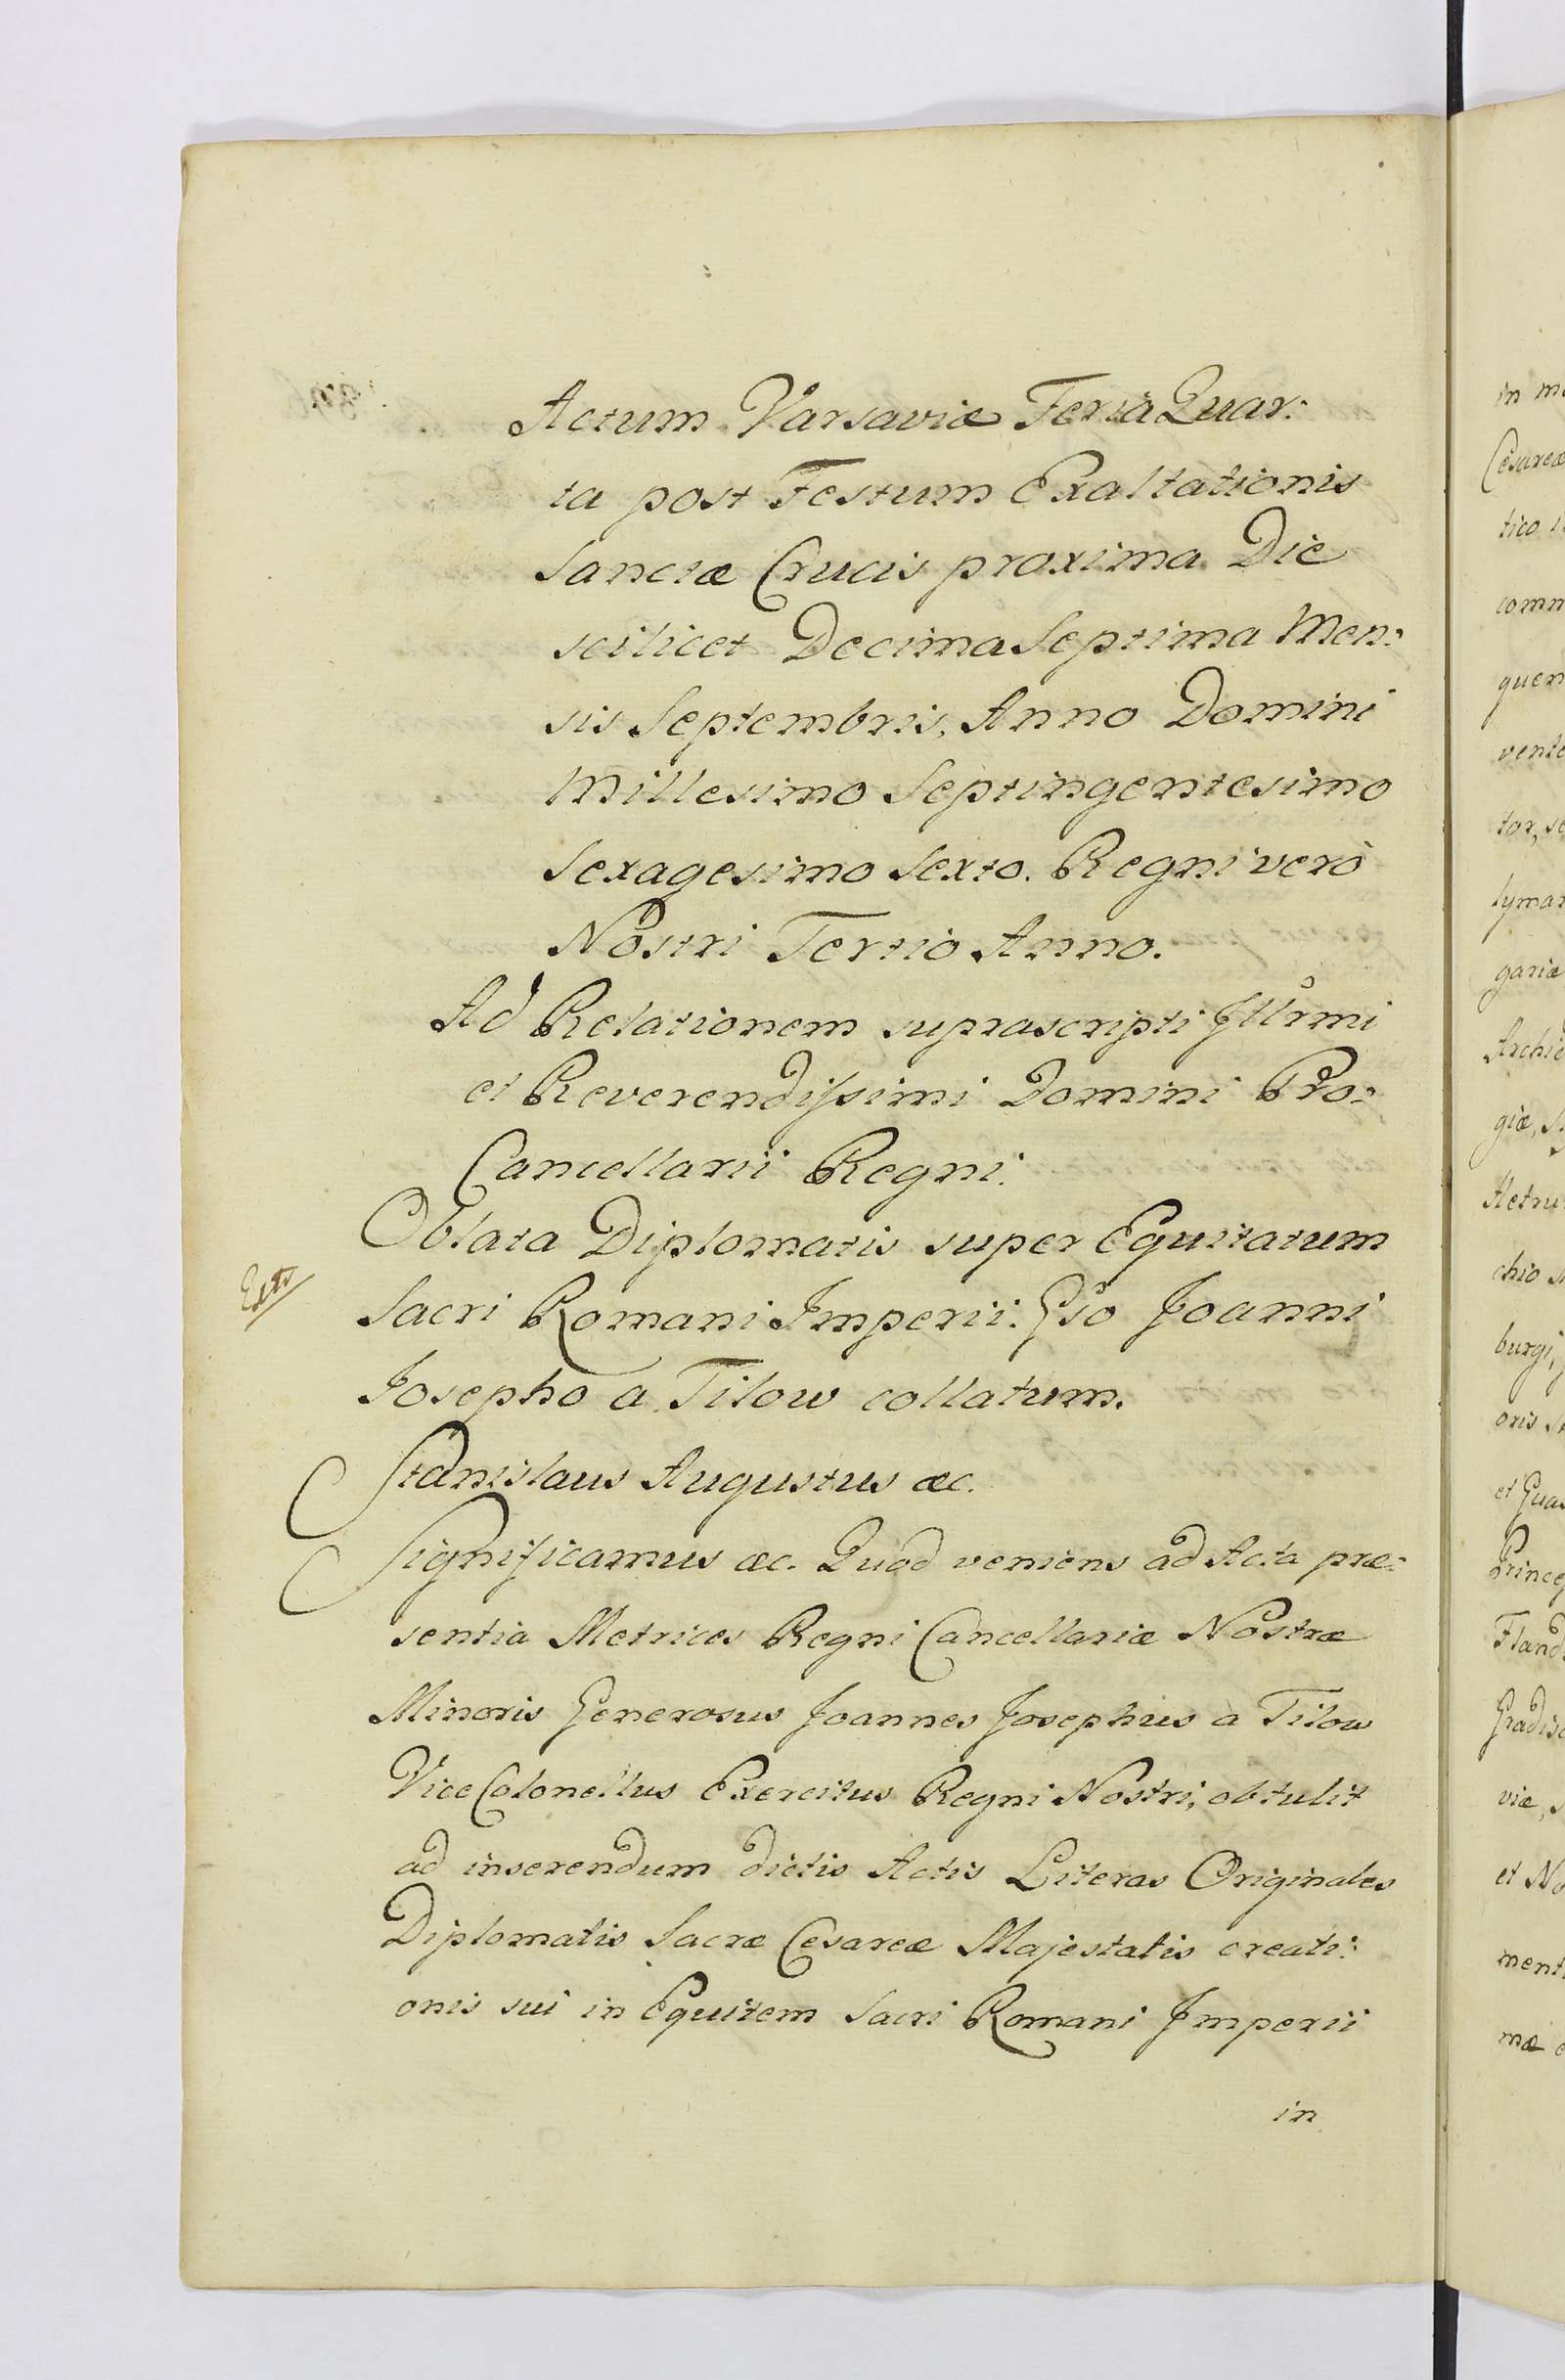 Actum Varsaviæ Feria Quar:
ta post Festum Exaltationis
Sanctæ Crucis proxima Die
scilicet Decima Septima Men:
sis Septembris, Anno Domini
Millesimo Septingentesimo
Sexagesimo Sexto. Regni verò
Nostri Tertio Anno.
Ad Relationem suprascripti Jllrmi
et Reverendissimi Domini Pro:
Cancellarii Regni.
Oblata Diplomatis super Equitatum
Sacri Romani Imperii. Gso Joanni
Josepho a Tilow collatum.
Stanislaus Augustus æc.
Significamus æc. Quod veniens ad Acta præ:
sentia Metrices Regni Cancellariæ Nostræ
Minoris Generosus Joannes Josephus à Tilow
Vice Colonellus Exercitus Regni Nostri, obtulit
ad inserendum dictis Actis Literas Originales
Diplomatis Sacræ Cesareæ Majestatis creati:
onis sui in Equitem Sacri Romani Imperii
in